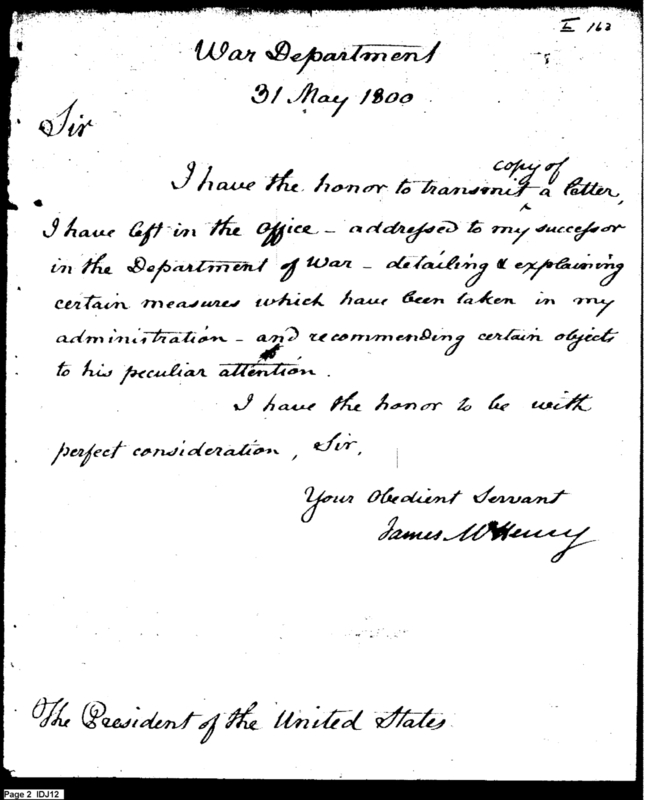 I 162
War Department
31 May 1800
Sir
copy of
I have the honor to transmit ^ a letter,
I have left in the office - addressed to my successor
in the Department of War - detailing & explaining
certain measures which have been taken in my
administration - and recommending certain objects
to his peculiar attention.
I have the honor to be with
perfect consideration, Sir,
Your Obedient Servant
James McHenry
The President of the United States
Page 2 IDJ12